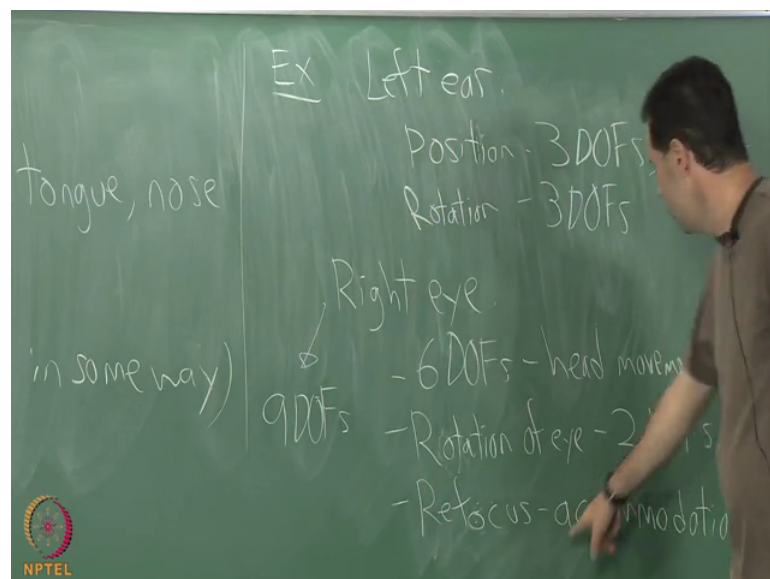 tongue, nose
in some way)
Ex Left ear.
Position - 3 DOFs,
Rotation - 3DOFs
Right eye.
9DOFs
- 6 DOFs - head
- Rotation of eye - 2
- Refocus -
NPTEL